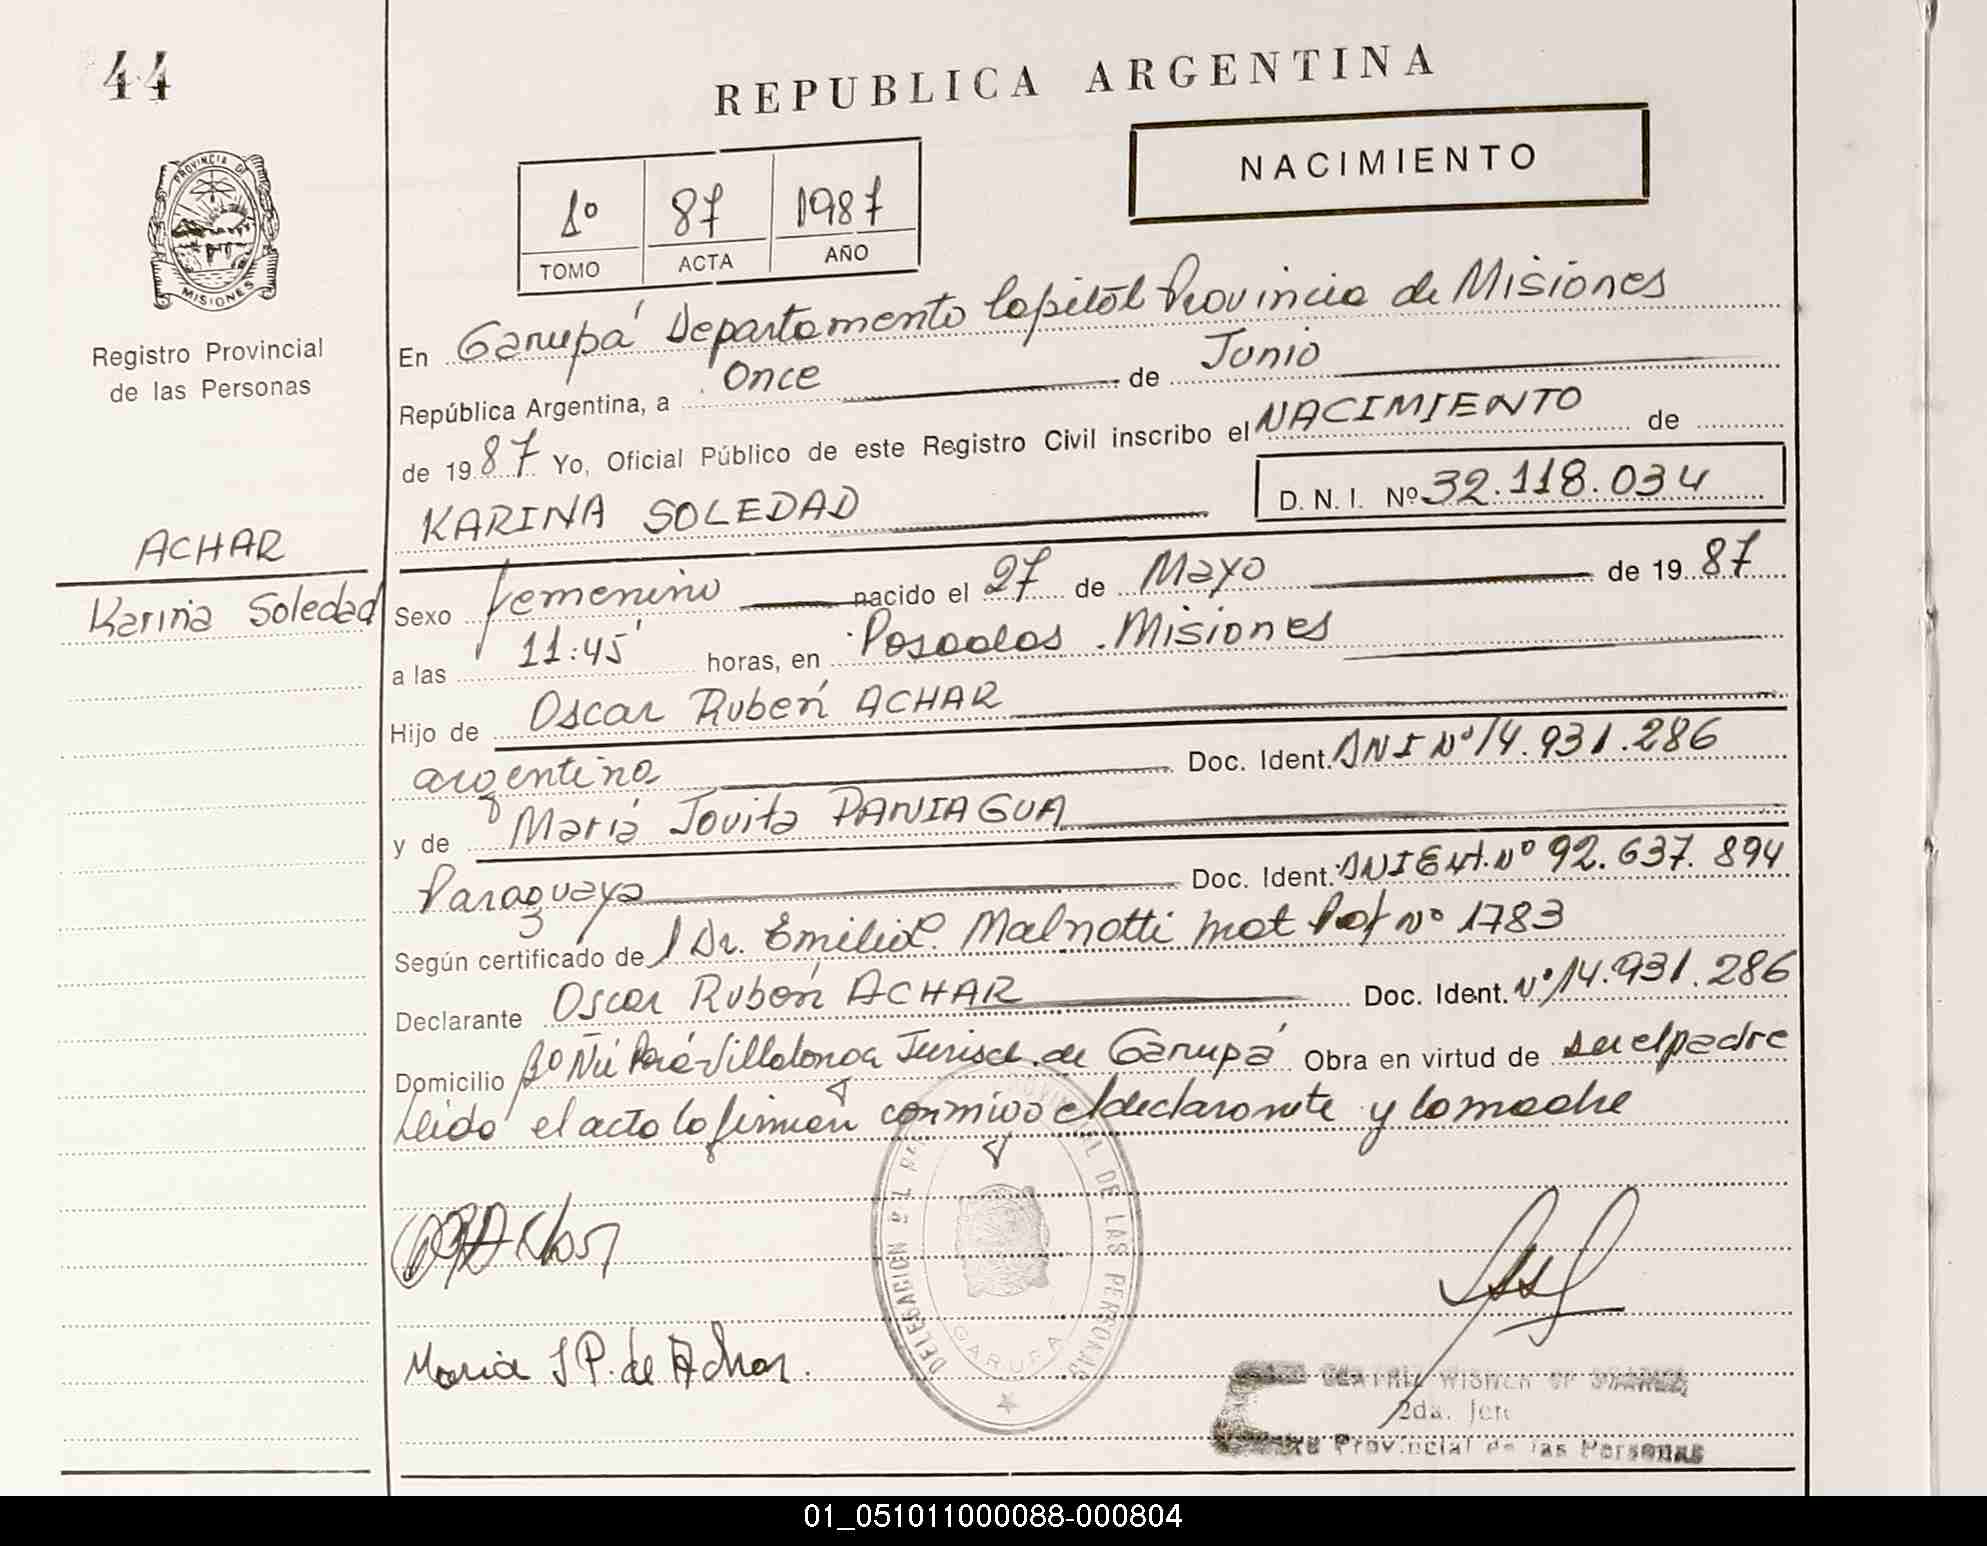 44
REPUBLICA ARGENTINA
NACIMIENTO
1º 87 1987
TOMO ACTA AÑO
PROVINCIA DE
MISIONES
Registro Provincial
de las Personas
En Garupá Departamento Capital Provincia de Misiones
República Argentina, a Once de Junio
de 1987 Yo, Oficial Público de este Registro Civil inscribo el NACIMIENTO de
KARINA SOLEDAD D. N. I. Nº 32.118.034
ACHAR
Karina Soledad
Sexo femenino nacido el 27 de Mayo de 1987
a las 11:45 horas, en Posadas. Misiones
Hijo de Oscar Rubén ACHAR
argentino Doc. Ident. DNI Nº 14.931.286
y de María Jovita PANIAGUA
Paraguaya Doc. Ident. DNI Ext. Nº 92.637.894
Según certificado de Dr. Emilio Malnatti Mat Prof Nº 1783
Declarante Oscar Rubén ACHAR Doc. Ident. Nº 14.931.286
Domicilio Bº Ñú Porá-Villalonga Jurisd. de Garupá Obra en virtud de ser el padre
Leído el acto lo firman conmigo el declarante y la madre
DELEGACION PROVINCIAL DE LAS PERSONAS
GARUPA
Maria J P. de Achar.
2da. Jefe
Provincial de las Personas
01_051011000088-000804